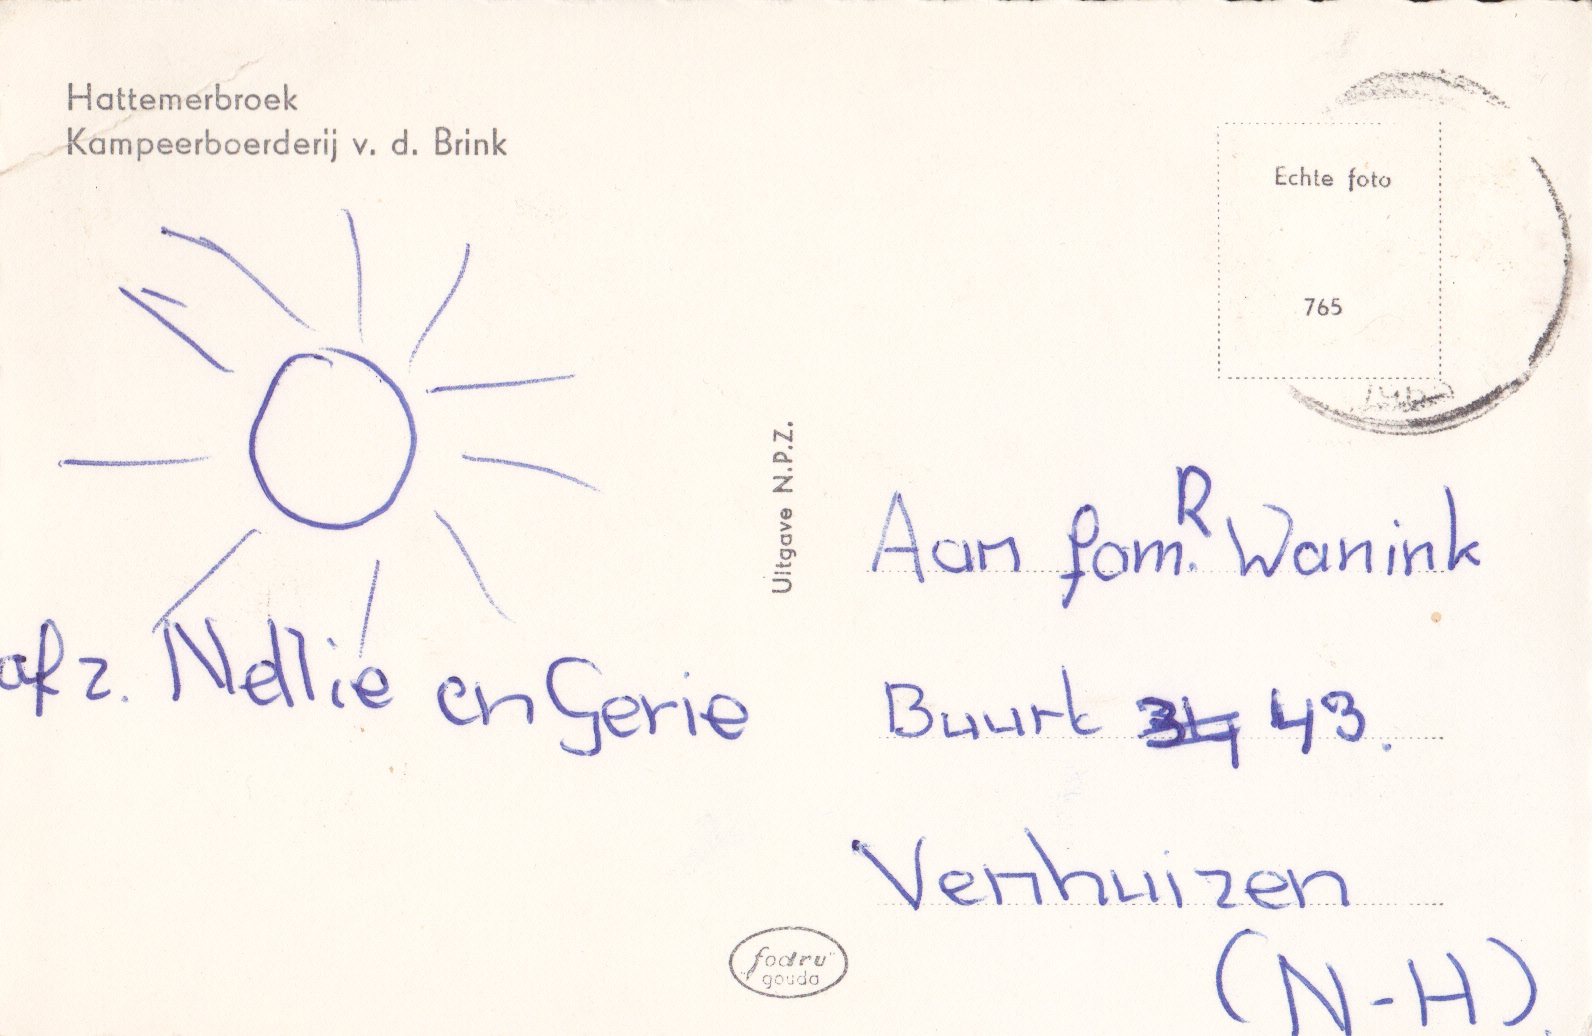 Hattemerbroek
Kampeerboerderij v. d. Brink
Echte foto
765
Uitgave N.P.Z.
Aan fam. R Wanink
Buurt 34 43.
Venhuizen
(N-H).
afz. Nellie en Gerie
fodru
gouda